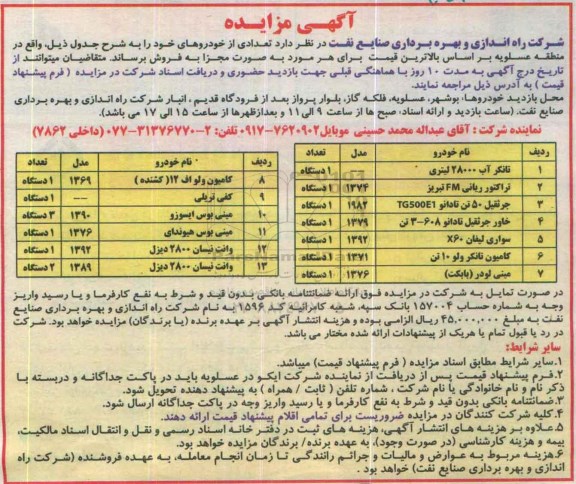 آگهی مزایده
شرکت راه اندازی و بهره برداری صنایع نفت در نظر دارد تعدادی از خودروهای خود را به شرح جدول ذیل، واقع در
منطقه عسلویه بر اساس بالاترین قیمت برای هر مورد به صورت مجزا به فروش برساند. متقاضیان میتوانند از
تاریخ درج آگهی به مدت ۱۰ روز با هماهنگی قبلی جهت بازدید حضوری و دریافت اسناد شرکت در مزایده ( فرم پیشنهاد
قیمت ) به آدرس ذیل مراجعه نمایند.
محل بازدید خودروها: بوشهر، عسلویه، فلکه گاز، بلوار پرواز بعد از فرودگاه قدیم ، انبار شرکت راه اندازی و بهره برداری
صنایع نفت. (ساعت بازدید و ارائه اسناد: صبح ها از ساعت ۹ الی ۱۱ و بعدازظهرها از ساعت ۱۵ الی ۱۷ می باشد).
نماینده شرکت : آقای عبداله محمد حسینی موبایل ۷۶۲۰۹۰۲-۰۹۱۷ تلفن: ۲-۳۱۳۷۶۷۷۰-۰۷۷ (داخلی ۷۸۶۲)
ردیف نام خودرو مدل تعداد
۱ تانکر آب ۲۸۰۰۰ لیتری ۱ دستگاه
۲ تراکتور رباتی FM تبریز ۱۳۷۴ ۱ دستگاه
۳ جرثقیل ۵۰ تن تادانو TG500E1 ۱۹۸۲ ۱ دستگاه
۴ خاور جرثقیل تادانو ۶۰۸-۳ تن ۱۳۷۹ ۱ دستگاه
۵ سواری لیفان X60 ۱۳۹۲ ۱ دستگاه
۶ کامیون تانکر ولو ۱۰ تن ۱۳۷۱ ۱ دستگاه
۷ مینی لودر (بابکت) ۱۳۷۶ ۱ دستگاه
ردیف نام خودرو مدل تعداد
۸ کامیون ولو اف ۱۲( کشنده ) ۱۳۶۹ ۱ دستگاه
۹ کفی تریلی --- ۱ دستگاه
۱۰ مینی بوس ایسوزو ۱۳۹۰ ۳ دستگاه
۱۱ مینی بوس هیوندای ۱۳۷۶ ۱ دستگاه
۱۲ وانت نیسان ۲۸۰۰ دیزل ۱۳۹۲ ۱ دستگاه
۱۳ وانت نیسان ۲۸۰۰ دیزل ۱۳۸۹ ۲ دستگاه
در صورت تمایل به شرکت در مزایده فوق ارائه ضمانتنامه بانکی بدون قید و شرط به نفع کارفرما و یا رسید واریز
وجه به شماره حساب ۱۵۷۰۰۴ بانک سپه، شعبه کامرانیه کد ۱۵۹۶ به نام شرکت راه اندازی و بهره برداری صنایع
نفت به مبلغ ۴۵,۰۰۰,۰۰۰ ریال الزامی بوده و هزینه انتشار آگهی بر عهده برنده (یا برندگان) مزایده خواهد بود. شرکت
در رد یا قبول تمام یا هریک از پیشنهادات ارائه شده مختار می باشد.
سایر شرایط:
۱.سایر شرایط مطابق اسناد مزایده ( فرم پیشنهاد قیمت) میباشد.
۲.فرم پیشنهاد قیمت پس از دریافت از نماینده شرکت ایکو در عسلویه باید در پاکت جداگانه و دربسته با
ذکر نام و نام خانوادگی یا نام شرکت ، شماره تلفن ( ثابت / همراه ) به پیشنهاد دهنده تحویل شود.
۳.ضمانتنامه بانکی بدون قید و شرط به نفع کارفرما و یا رسید واریز وجه در پاکت جداگانه ارسال شود.
۴.کلیه شرکت کنندگان در مزایده ضروریست برای تمامی اقلام پیشنهاد قیمت ارائه دهند.
۵.علاوه بر هزینه های انتشار آگهی، هزینه های ثبت در دفتر خانه اسناد رسمی و نقل و انتقال اسناد مالکیت،
بیمه و هزینه کارشناسی (در صورت وجود)، به عهده برنده/ برندگان مزایده خواهد بود.
۶.هزینه مربوط به عوارض و مالیات و جرائم رانندگی تا زمان انجام معامله، به عهده فروشنده (شرکت راه
اندازی و بهره برداری صنایع نفت) خواهد بود .